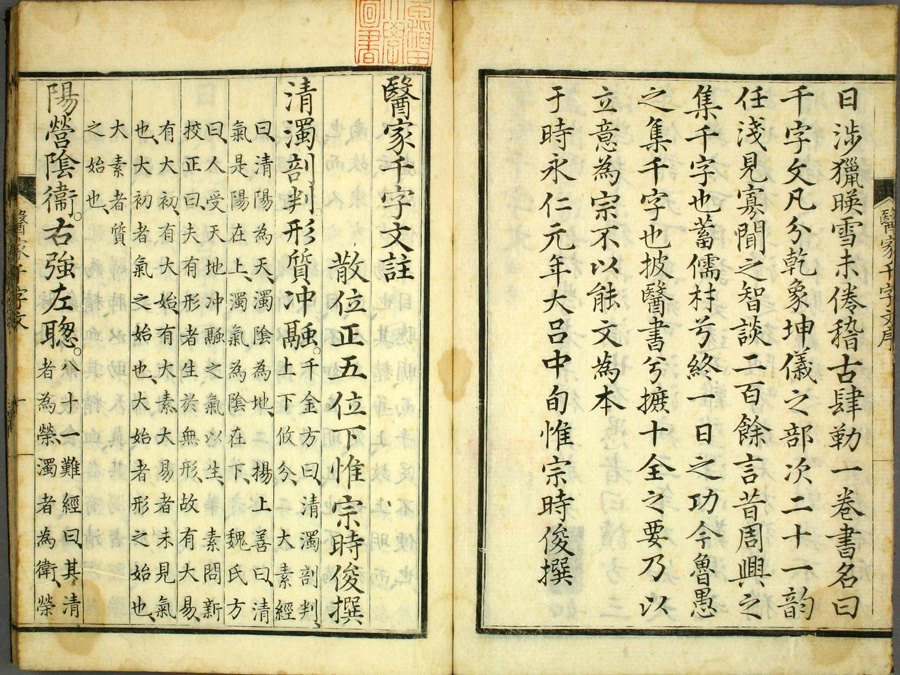 日涉獵暎雪未倦稽古肆勒一卷書名曰
千字文凡分乾象坤儀之部次二十一韵
任淺見寡聞之智談二百餘言昔周興之
集千字也蓄儒材兮終一日之功今魯愚
之集千字也披醫書兮摭十全之要乃以
立意為宗不以能文為本
于時永仁元年大呂中旬惟宗時俊撰
醫家千字文序
醫家千字文註
散位正五位下惟宗時俊撰
清濁剖判形質冲融。千金方曰、清濁剖判、
上下攸分、大素經
曰、清陽為天、濁陰為地、楊上善曰、清
氣是陽在上、濁氣為陰在下、魏氏方
曰、人受天地冲融之氣以生、素問新
校正曰、夫有形者生於無形、故有大易、
有大初、有大始、有大素、大易者未見氣
也、大初者氣之始也、大始者形之始也、
大素者質
之始也、
陽營陰衞。右強左聰。八十一難經曰、其清
者為榮濁者為衛榮
醫家千字文